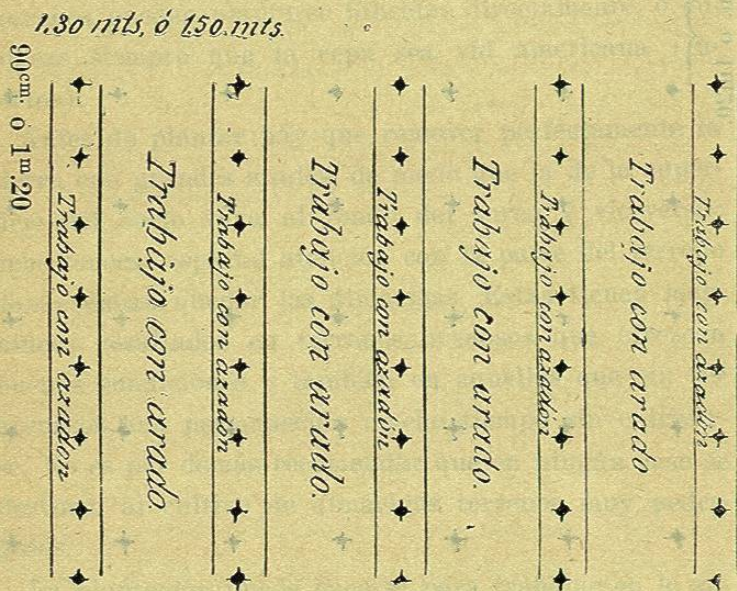 1.30 mts, ó 1.50 mts.
90 cm. ó 1 m.20
Trabajo con azadon
Trabajo con arado.
Trabajo con azadon
Trabajo con arado.
Trabajo con azadón
Trabajo con arado.
Trabajo con azadón
Trabajo con arado
Trabajo con azadón